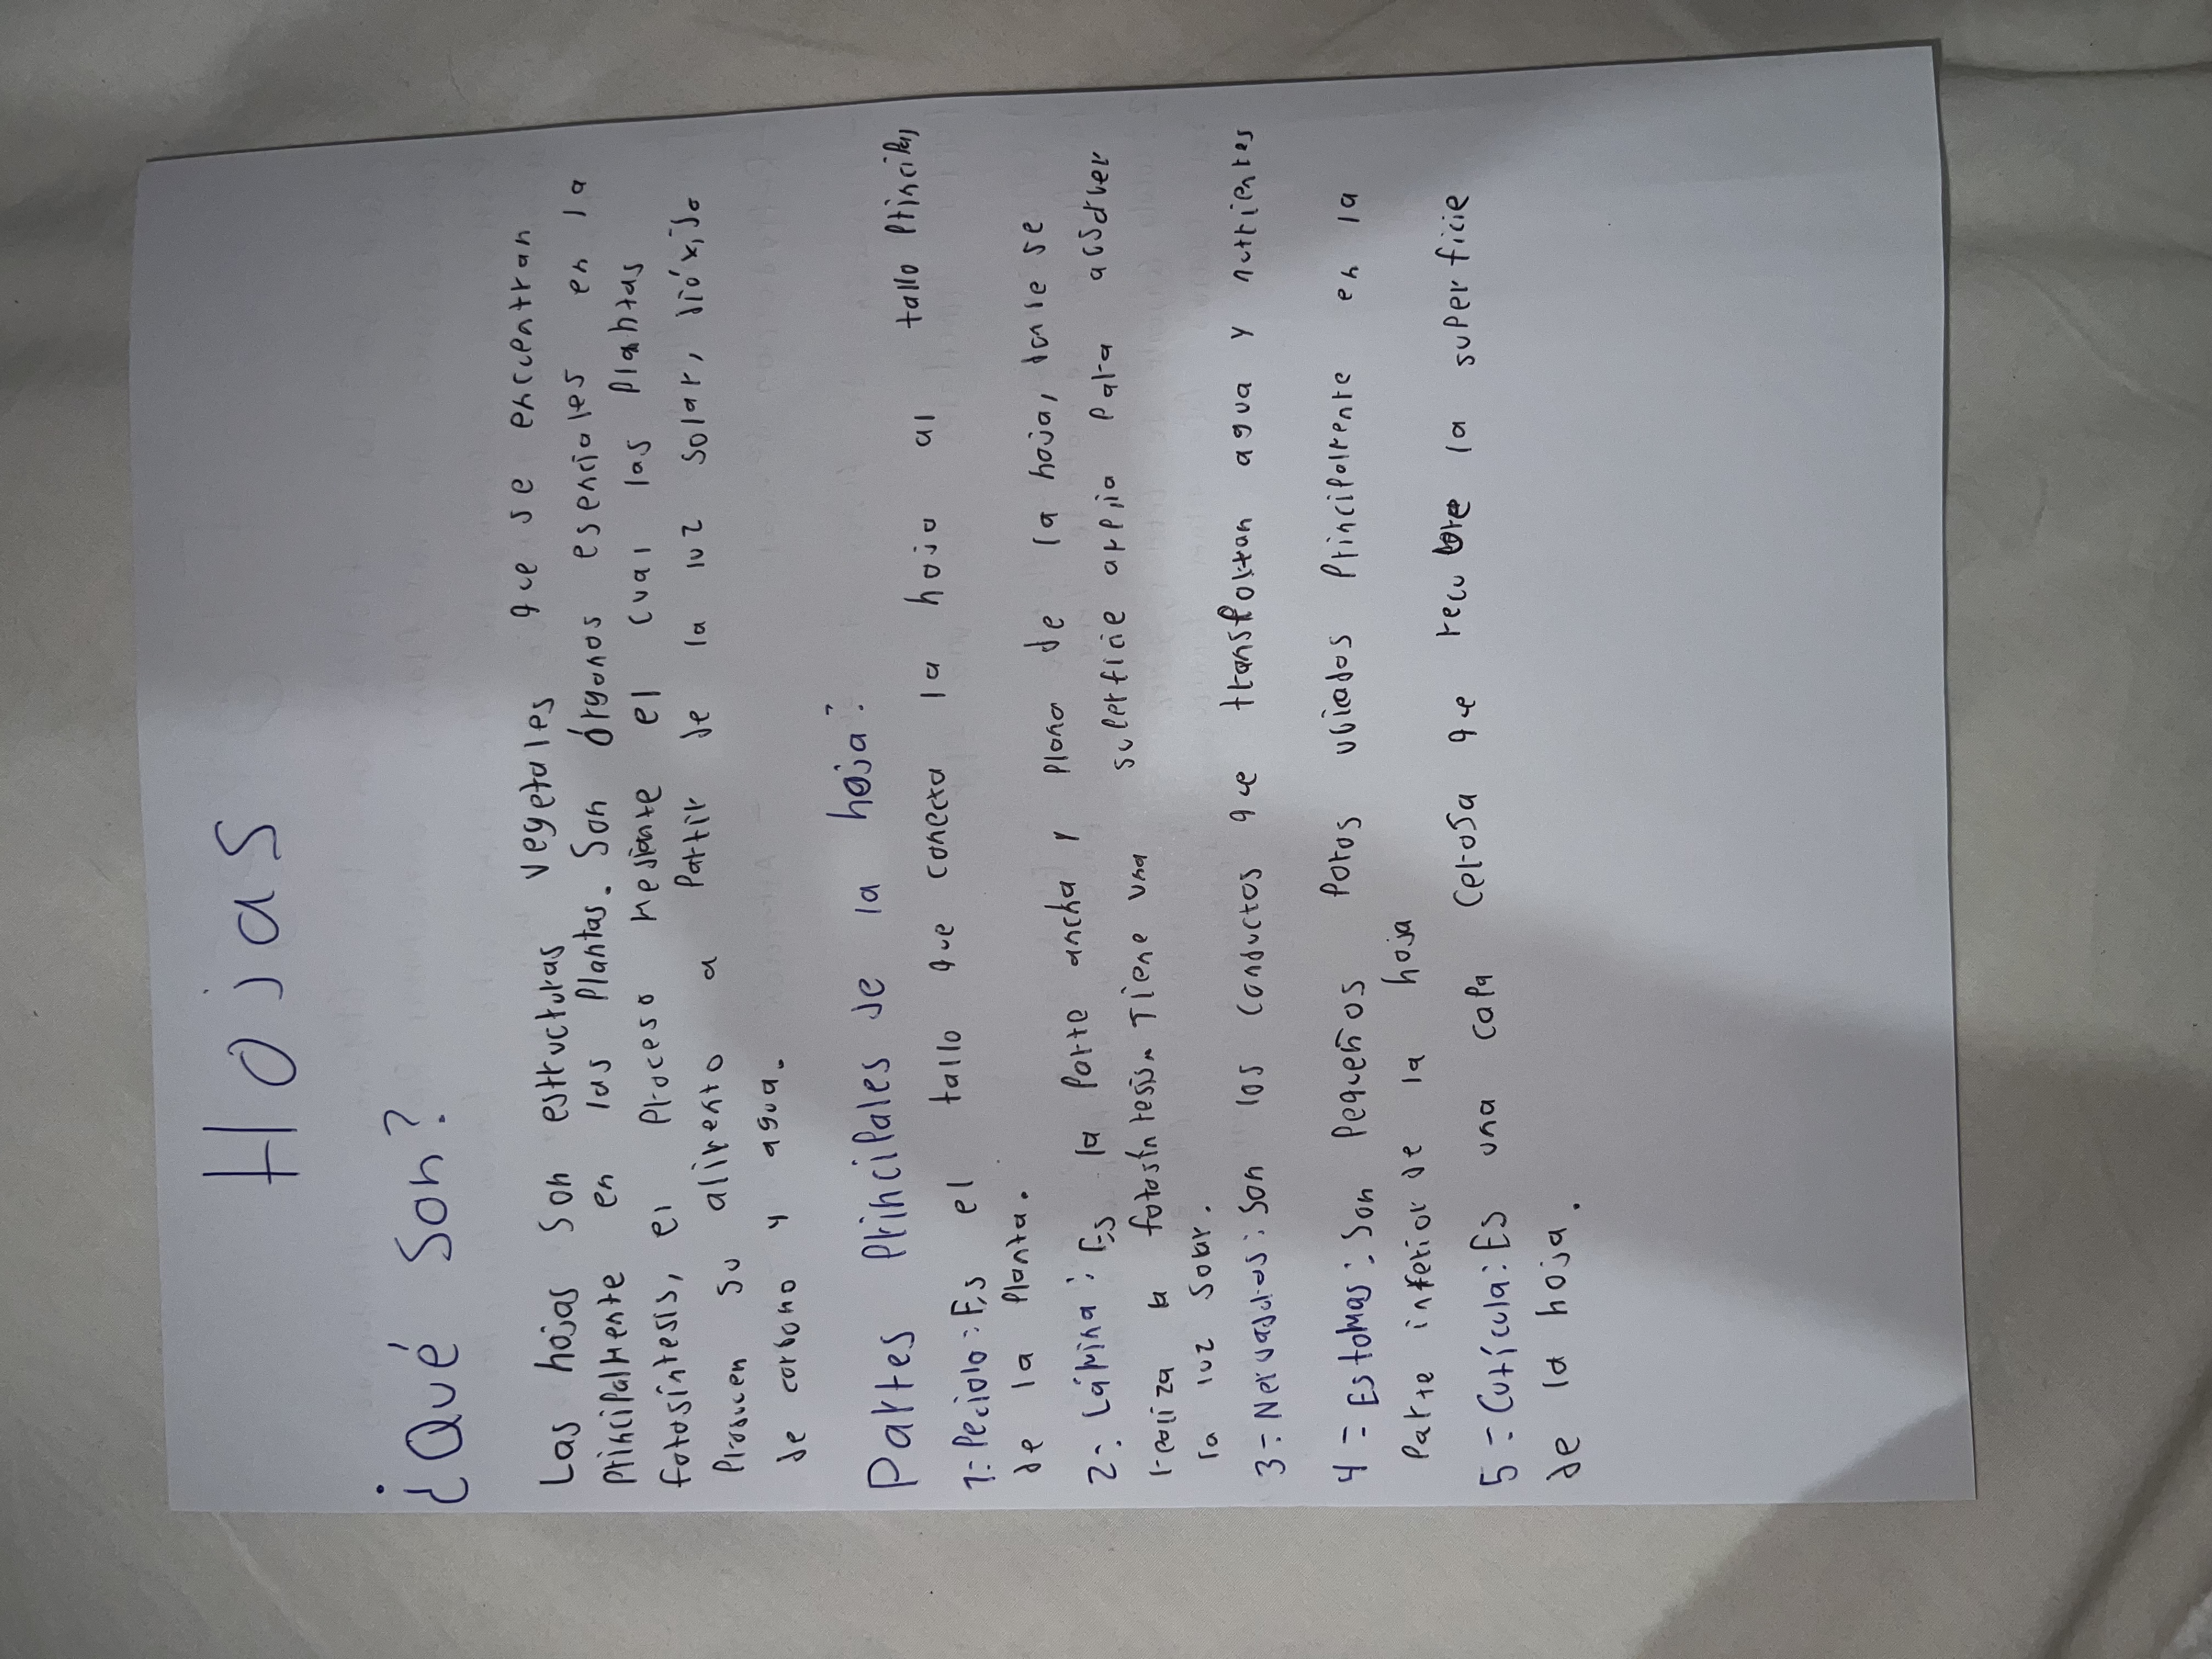 Hojas
¿Qué Son?
Las hojas Son estructuras vegetales que se encuentran
principalmente en las plantas. Son órganos esenciales en la
fotosíntesis, el proceso mediante el cual las plantas
producen su alimento a partir de la luz solar, dióxido
de carbono y agua.
Partes principales de la hoja?
1-: Peciolo: Es el tallo que conecta la hoja al tallo principal
de la planta.
2-: Lámina: Es la parte ancha y plana de la hoja, donde se
realiza la fotosintesis. Tiene una superficie amplia para absorber
la luz solar.
3-: Nervaduras: Son los conductos que transportan agua y nutrientes
4-: Estomas: Son pequeños poros ubicados principalmente en la
parte inferior de la hoja
5-: Cutícula: Es una capa Cerosa que recubre la superficie
de la hoja.